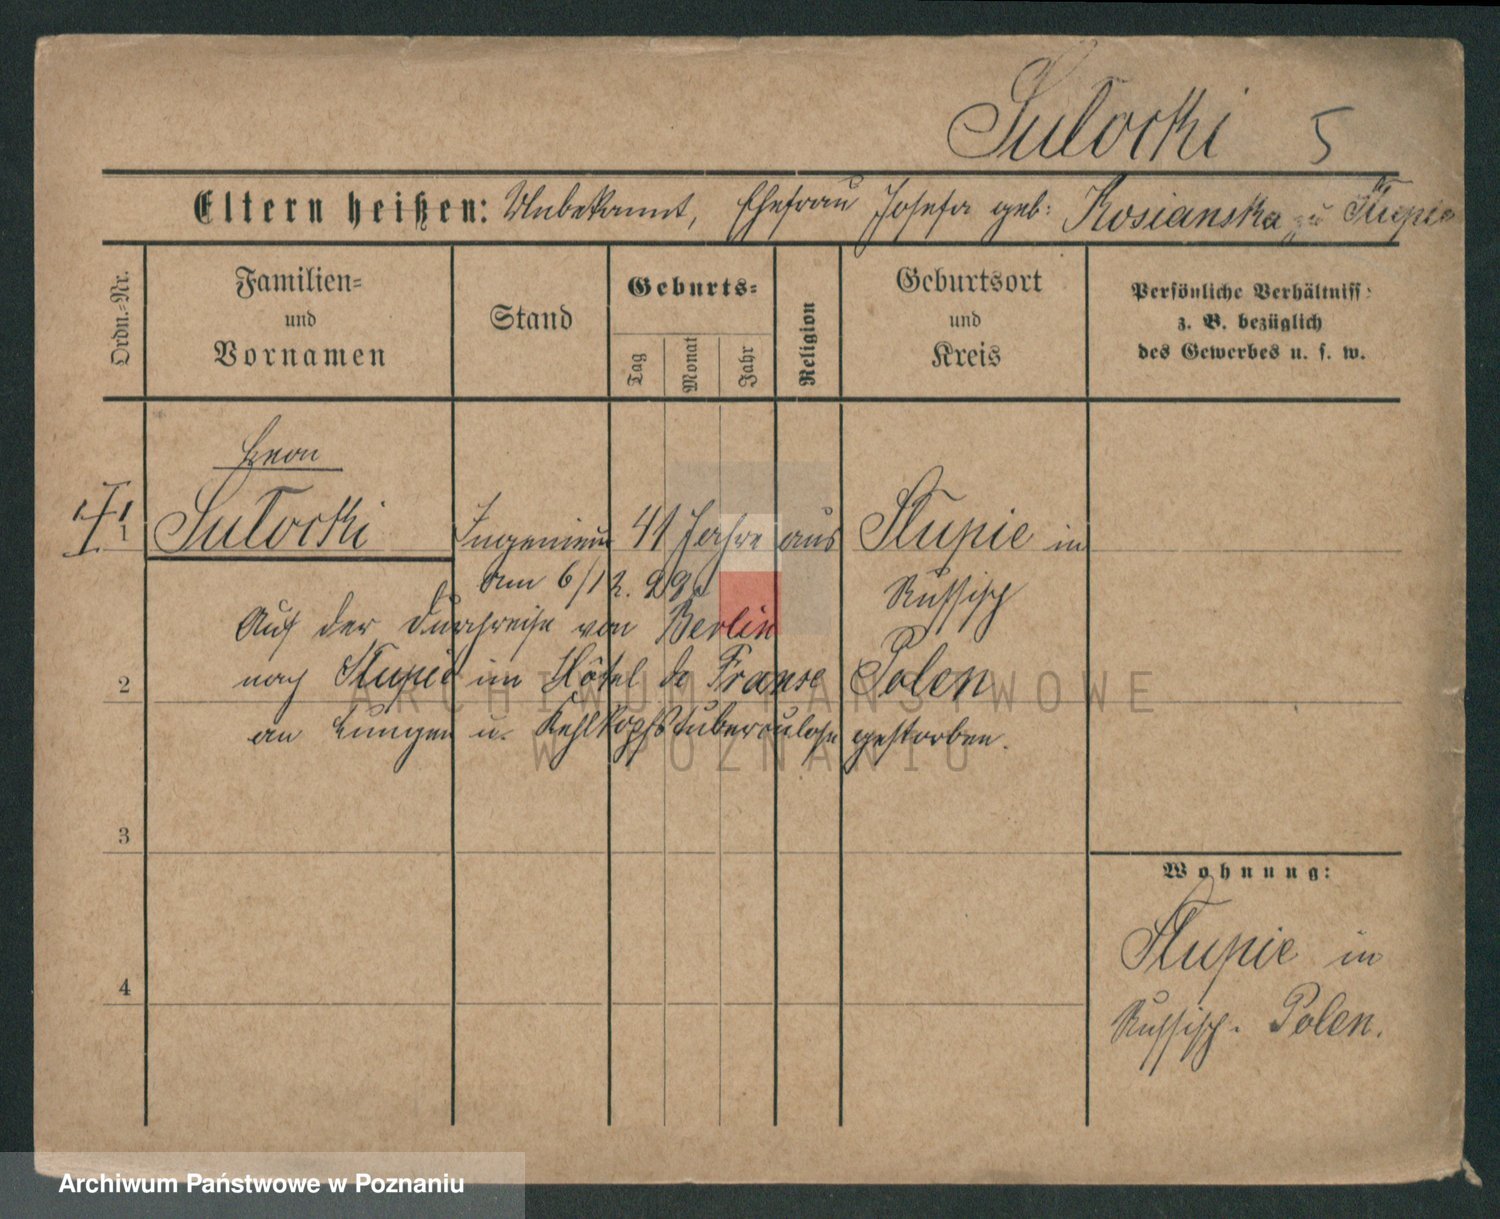 Sulocki 5
Eltern heißen: Unbekannt, Ehefrau Josefa geb: Kosianska zu Slupie
Ordn.-Nr.
Familien-
und
Vornamen
Stand
Geburts-
Tag
Monat
Jahr
Religion
Geburtsort
und
Kreis
Persönliche Verhältniss
z. B. bezüglich
des Gewerbes u. s. w.
Leon
1 Sulocki Ingenieur 41 Jahre aus Slupie in
am 6/12. 99. Russisch
Auf der Durchreise von Berlin
2 nach Slupie im Hôtel de Franse Polen
an Lungen u. Kehlkopfstuberculose gestorben.
3
4
Wohnung:
Slupie in
Russisch-Polen.
ARCHIWUM PAŃSTWOWE
W POZNANIU
Archiwum Państwowe w Poznaniu